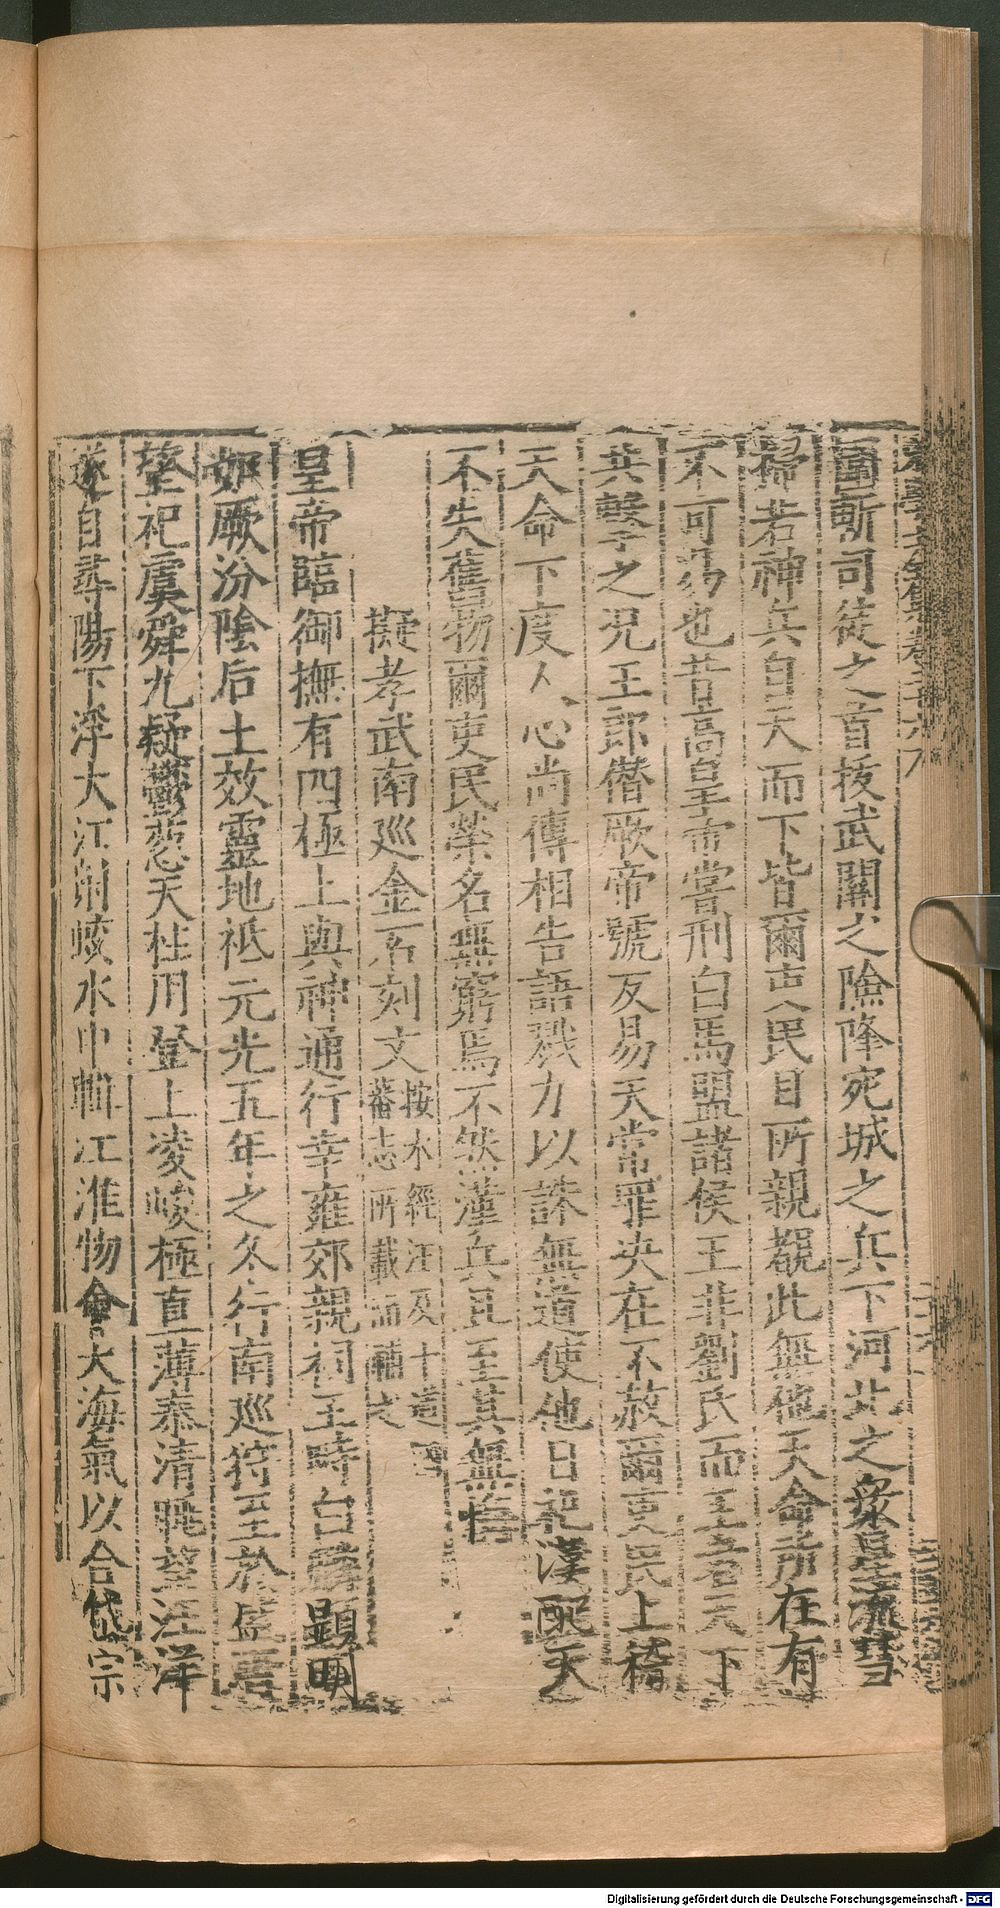 圖斬司徒之首拔武關之險降宛城之兵下河北之衆星流彗
掃若神兵自天而下皆爾吏民目所親覩此無他天命所在有
不可易也昔高皇帝嘗刑白馬盟諸侯王非劉氏而王者天下
共擊之況王郎僭厥帝號反易天常罪決在不赦爾吏民上稽
天命下度人心尚傳相告語戮力以誅無道使他日祀漢配天
不失舊物爾吏民榮名無窮焉不然漢兵且至其無悔
擬孝武南巡金石刻文
按水經江及十道
蕃志所載而補之
皇帝臨御撫有四極上與神通行幸雍郊親祠五畤白麟顯明
如厥汾陰后土效靈地祗元光五年之冬行南巡狩至於盛唐
望祀虞舜九疑鬱蔥天柱用登上凌峻極直薄泰清眺望汪洋
遂自尋陽下浮大江射蛟水中輯江淮物會大海氣以合岱宗
Digitalisierung gefördert durch die Deutsche Forschungsgemeinschaft - DFG